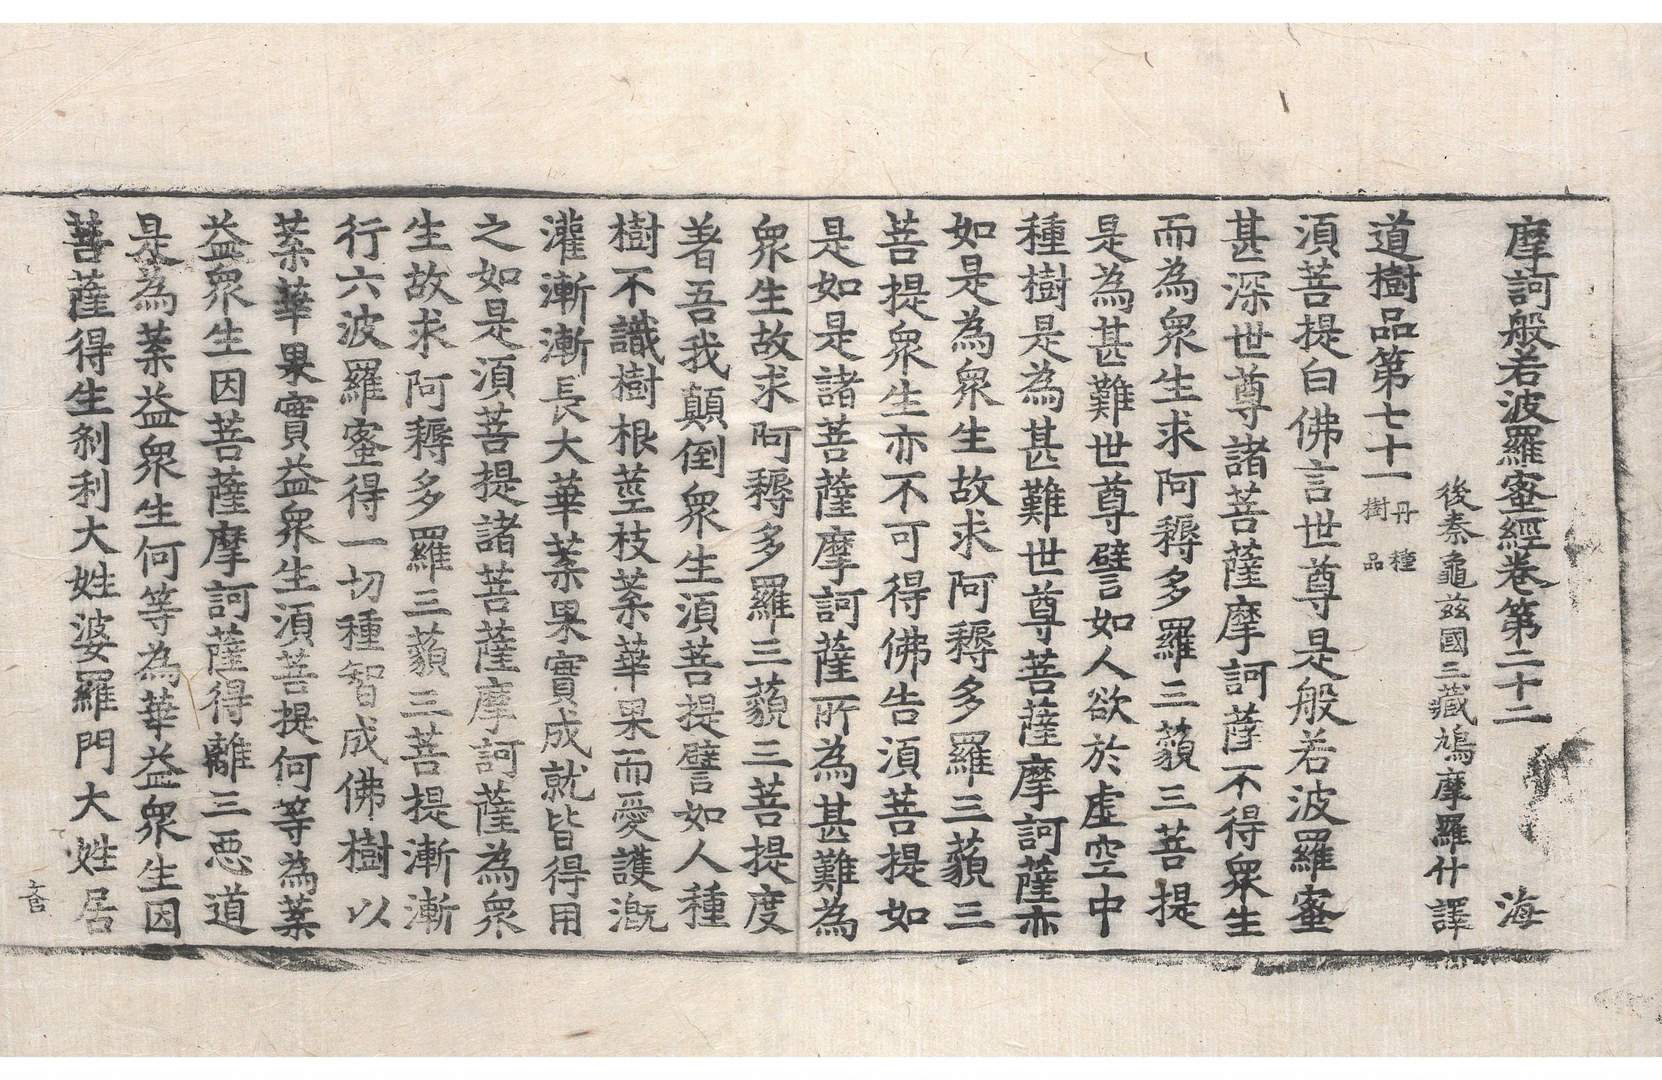 摩訶般若波羅蜜經卷第二十二　海
後秦龜茲國三藏鳩摩羅什譯
道樹品第七十一 丹種樹品
須菩提白佛言世尊是般若波羅蜜
甚深世尊諸菩薩摩訶薩不得衆生
而為衆生求阿耨多羅三藐三菩提
是為甚難世尊譬如人欲於虛空中
種樹是為甚難世尊菩薩摩訶薩亦
如是為衆生故求阿耨多羅三藐三
菩提衆生亦不可得佛告須菩提如
是如是諸菩薩摩訶薩所為甚難為
衆生故求阿耨多羅三藐三菩提度
著吾我顛倒衆生須菩提譬如人種
樹不識樹根莖枝葉華果而愛護溉
灌漸漸長大華葉果實成就皆得用
之如是須菩提諸菩薩摩訶薩為衆
生故求阿耨多羅三藐三菩提漸漸
行六波羅蜜得一切種智成佛樹以
葉華果實益衆生須菩提何等為葉
益衆生因菩薩摩訶薩得離三惡道
是為葉益衆生何等為華益衆生因
菩薩得生刹利大姓婆羅門大姓居